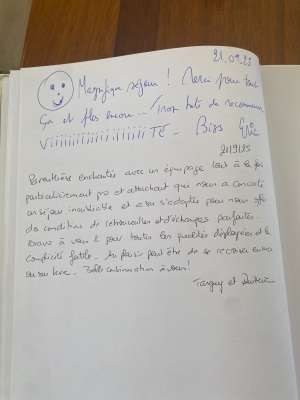 21.09.25
Magnifique séjour ! Merci pour tout
Ça et plus encore... Trop hâte de recommencer
Viiiiiiiiiiiiiiiiiii TE - Bises Eric
21/9/25
enchantée avec un équipage tout à la fois
particulièrement pro et attachant qui nous a concocté
un séjour inoubliable et a su s'adapter pour nous offrir
des conditions de retrouvailles et d'échanges parfaites.
Bravo à vous 2 pour toutes les qualités déployées et la
complicité . Au plaisir peut être de se recroiser en mer
ou sur terre. Belle continuation à vous !
Tanguy et